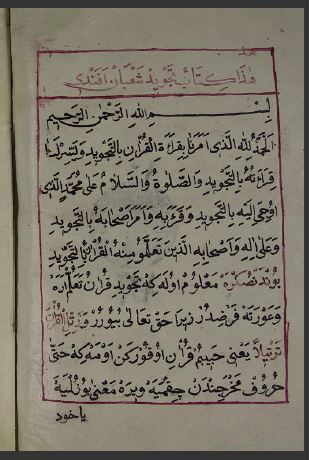 هذا كتاب تجويد شعبان افندى
بسم الله الرحمن الرحيم
الحمد لله الذى امرنا بقراءة القرآن بالتجويد ويسر لنا
قراءته بالتجويد والصلوة والسلام على محمد الذى
اوحى اليه بالتجويد وقربه وامر اصحابه بالتجويد
وعلى اله واصحابه الذين تعلموا منه القرآن بالتجويد
بوندنصكره معلوم اوله كه تجويد قرآن تعلم اره
وعورته فرضدر زيرا حق تعالى بيورر ورتل القرآن
ترتيلا يعنى حبيبم قرآن اوقورکن اومه كه حتى
حروف مخرجندن چقميه ويره معنى بوزلميه
ياخود